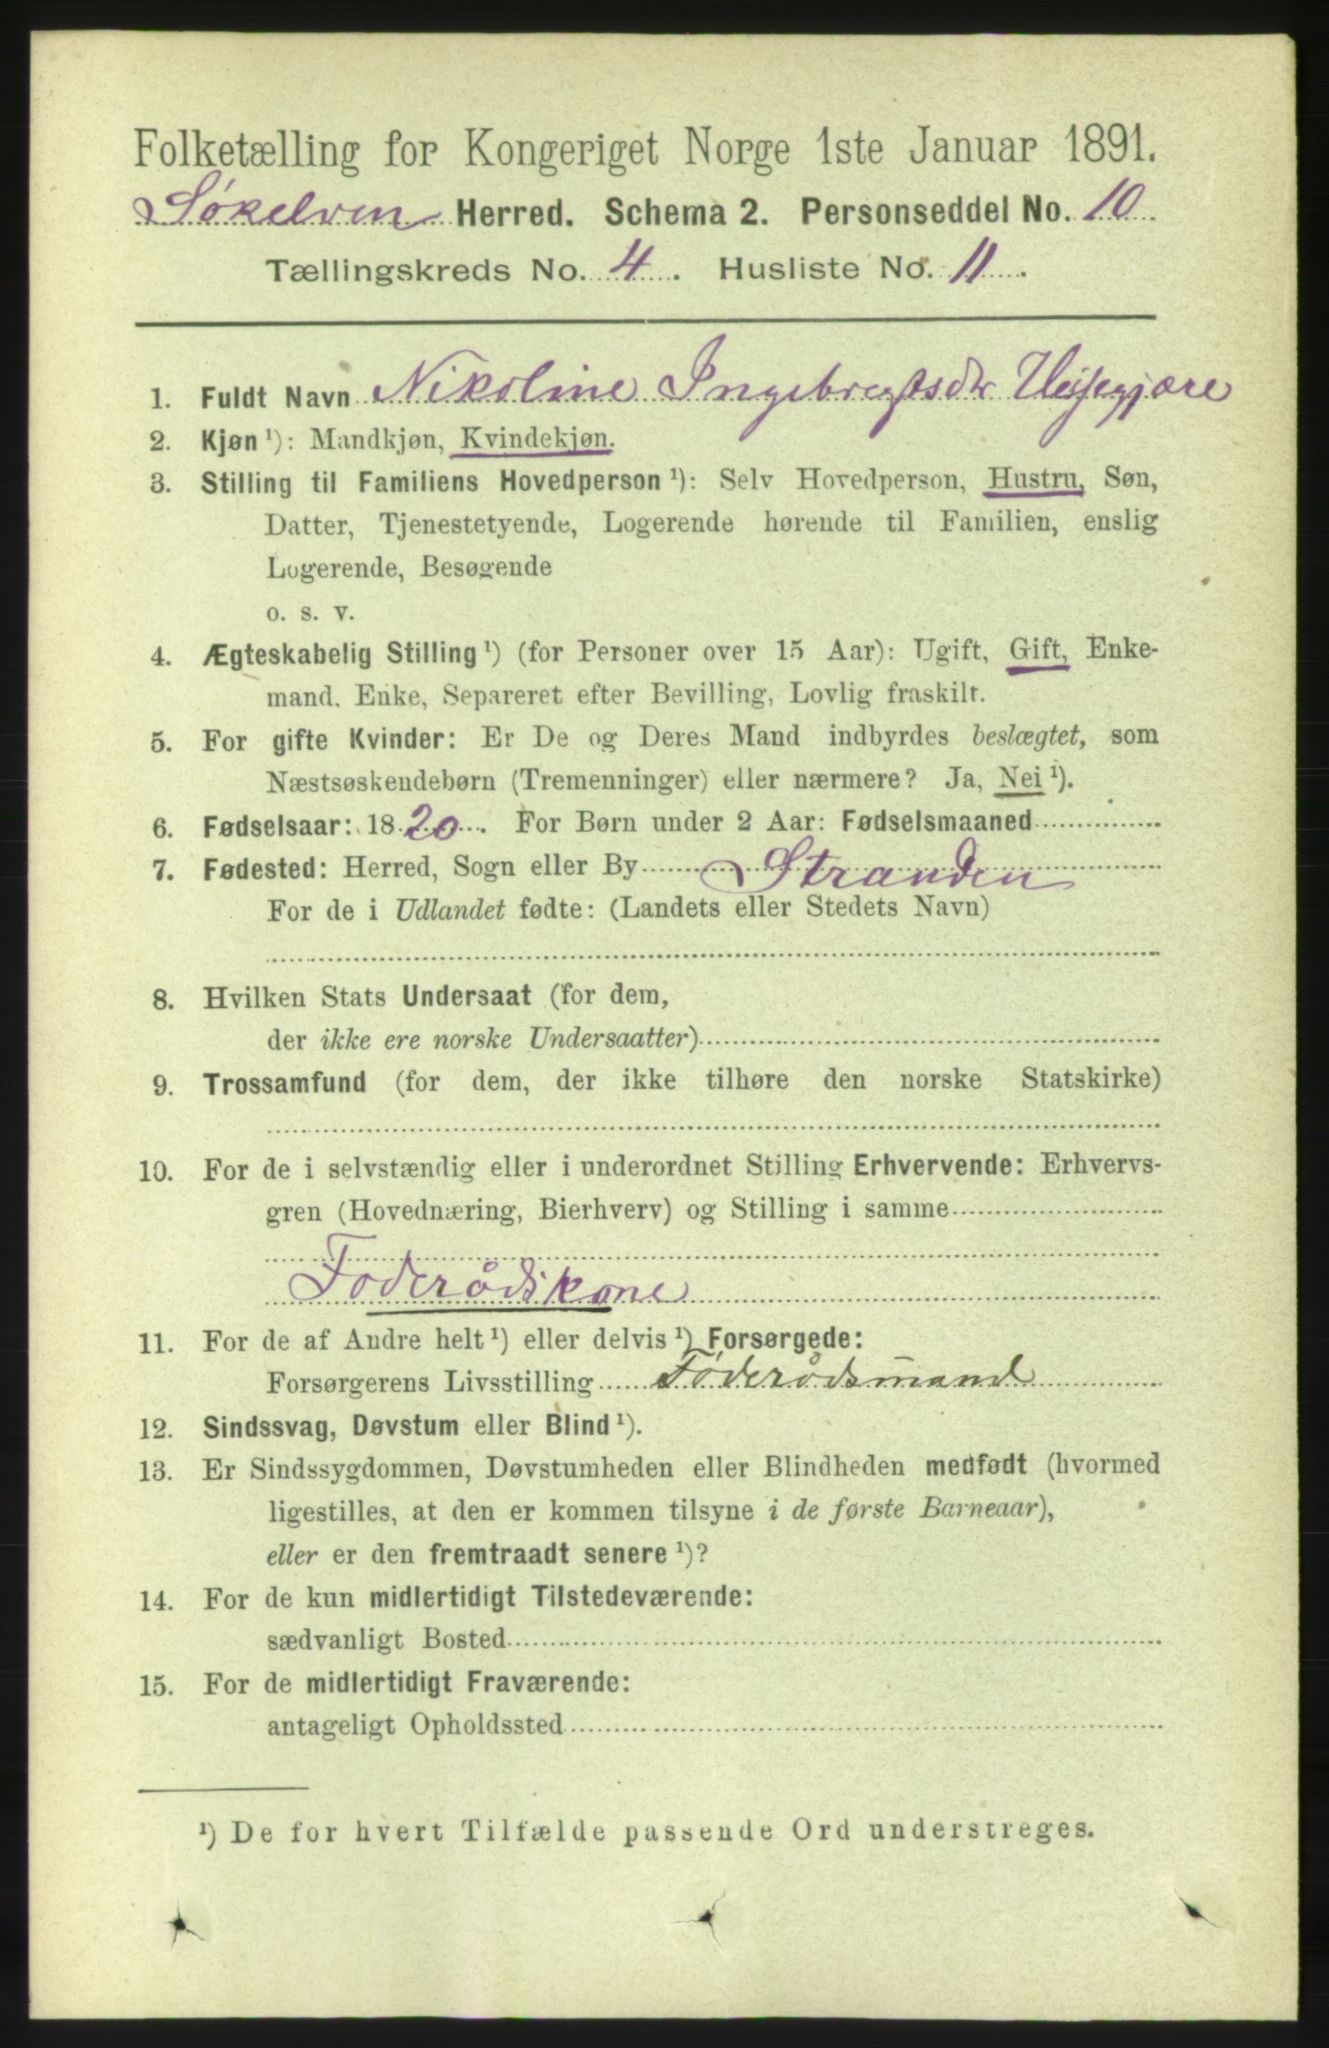 Folketælling for Kongeriget Norge 1ste Januar 1891.
Søkelven Herred. Schema 2. Personseddel No. 10
Tællingskreds No. 4. Husliste No. 11.
1. Fuldt Navn Nikoline Ingebregtsdr
2. Kjøn ¹): Mandkjøn, Kvindekjøn.
3. Stilling til Familiens Hovedperson ¹): Selv Hovedperson, Hustru, Søn,
Datter, Tjenestetyende, Logerende hørende til Familien, enslig
Logerende, Besøgende
o. s. v.
4. Ægteskabelig Stilling ¹) (for Personer over 15 Aar): Ugift, Gift, Enke-
mand, Enke, Separeret efter Bevilling, Lovlig fraskilt.
5. For gifte Kvinder: Er De og Deres Mand indbyrdes beslægtet, som
Næstsøskendebørn (Tremenninger) eller nærmere? Ja, Nei ¹).
6. Fødselsaar: 1820. For Børn under 2 Aar: Fødselsmaaned
7. Fødested: Herred, Sogn eller By Stranden
For de i Udlandet fødte: (Landets eller Stedets Navn)
8. Hvilken Stats Undersaat (for dem,
der ikke ere norske Undersaatter)
9. Trossamfund (for dem, der ikke tilhøre den norske Statskirke)
10. For de i selvstændig eller i underordnet Stilling Erhvervende: Erhvervs-
gren (Hovednæring, Bierhverv) og Stilling i samme
Foderådskone
11. For de af Andre helt ¹) eller delvis ¹) Forsørgede:
Forsørgerens Livsstilling Føderådsmand
12. Sindssvag, Døvstum eller Blind ¹).
13. Er Sindssygdommen, Døvstumheden eller Blindheden medfødt (hvormed
ligestilles, at den er kommen tilsyne i de første Barneaar),
eller er den fremtraadt senere ¹)?
14. For de kun midlertidigt Tilstedeværende:
sædvanligt Bosted
15. For de midlertidigt Fraværende:
antageligt Opholdssted
¹) De for hvert Tilfælde passende Ord understreges.